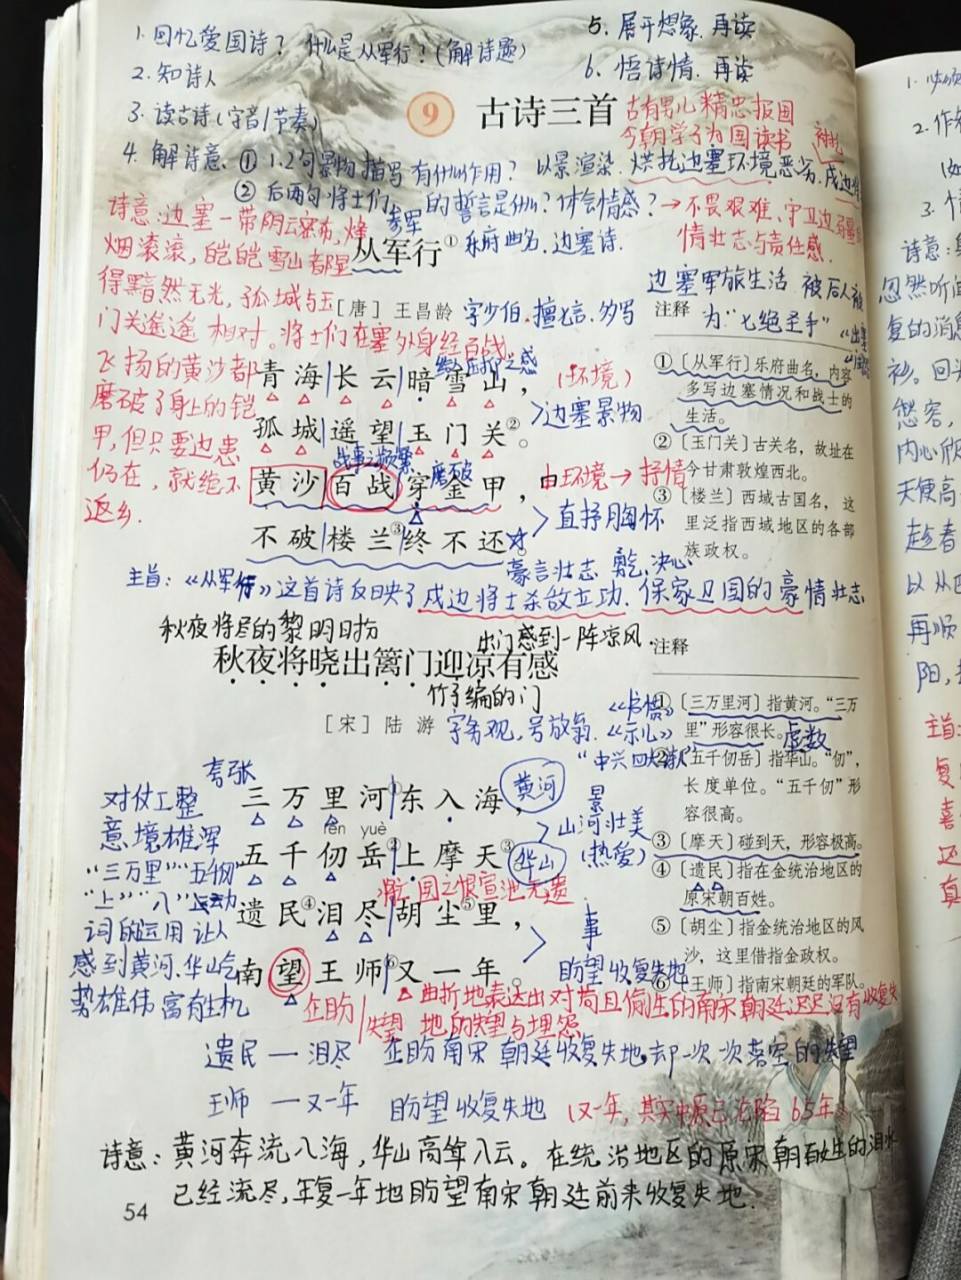 1. 回忆爱国诗？ 什么是从军行？（解诗题）
2. 知诗人
3. 读古诗（字音/节奏）
4. 解诗意. ① 1.2句景物描写有什么作用？ 以景渲染. 烘托边塞环境恶劣. 戍边
② 后两句将士们的誓言是什么？体会情感？→不畏艰难、守卫边疆的
情壮志与责任感.
5. 展开想象. 再读
6. 悟诗情. 再读
9 古诗三首
古有男儿精忠报国
今朝学子为国读书
从军行①
乐府曲名. 边塞诗.
[唐] 王昌龄 字少伯. 擅七言. 多写
边塞军旅生活 被后人被
为“七绝圣手”
诗意:边塞一带阴云密布,烽
烟滚滚, 皑皑雪山都显
得黯然无光, 孤城与玉
门关遥遥相对. 将士们在塞外身经百战,
飞扬的黄沙都
磨破了身上的铠
甲, 但只要边患
仍在, 就绝不
返乡.
青海|长云|暗雪山， （环境）
孤城|遥望|玉门关②。
边塞景物
战事之频繁 磨破
黄沙百战穿金甲， 由环境→抒情
不破|楼兰③|终不还。
直抒胸怀
豪言壮志 决心
主旨:《从军行》这首诗反映了戍边将士杀敌立功. 保家卫国的豪情壮志
注释
①〔从军行〕乐府曲名，内容
多写边塞情况和战士的
生活。
②〔玉门关〕古关名，故址在
今甘肃敦煌西北。
③〔楼兰〕西域古国名，这
里泛指西域地区的各部
族政权。
秋夜将尽的黎明时分
出门感到一阵凉风.
秋夜将晓出篱门迎凉有感
竹子编的门
[宋] 陆 游 字务观, 号放翁.《书愤》
《示儿》
“中兴四大诗人”
夸张
三万里河①|东入海， 黄河
rèn yuè
五千仞岳②|上摩天③， 华山
景
山河壮美
（热爱）
亡国之恨宣泄无遗
遗民④泪尽|胡尘⑤里，
事
南望王师⑥|又一年。
盼望收复失地
对仗工整
意境雄浑
“三万里”“五千仞”
“上”“入”
词的运用让人
感到黄河. 华山气
势雄伟富有生机
企盼/失望 曲折地表达出对苟且偷生的南宋朝廷迟迟没有收复失
地的失望与埋怨
遗民 — 泪尽 企盼南宋朝廷收复失地,却一次次落空的失望
王师 — 又一年 盼望收复失地 （又一年, 其实中原已沦陷65年）
诗意: 黄河奔流入海, 华山高耸入云。在统治地区的原宋朝百姓的泪水
已经流尽,年复一年地盼望南宋朝廷前来收复失地.
注释
①〔三万里河〕指黄河。“三万
里”形容很长。 虚数
②〔五千仞岳〕指华山。“仞”，
长度单位。“五千仞”形
容很高。
③〔摩天〕碰到天，形容极高。
④〔遗民〕指在金统治地区的
原宋朝百姓。
⑤〔胡尘〕指金统治地区的风
沙，这里借指金政权。
⑥〔王师〕指南宋朝廷的军队。
54
忽然听闻
复的消息
内心欣
天便高
趁着
以从巴
再顺
阳,
主旨: